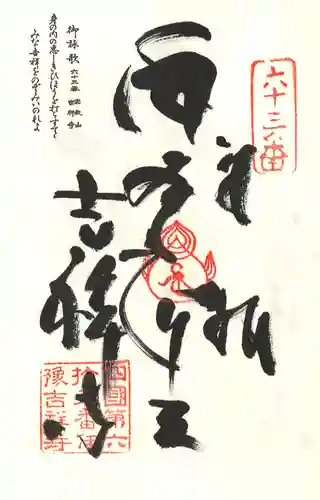 六十三番
奉拝
毘沙門天
吉祥寺
四國第六
拾三番伊
豫吉祥寺
御詠歌 六十三番 密教山 吉祥寺
身の内の悪しきひほうを打ちすてて
みな吉祥をのぞみいのれよ